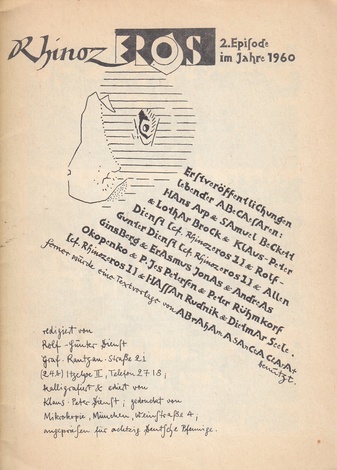 Rhinoz EROS
2. Episode
im Jahre 1960
Erstveröffentlichungen
lebender ABeCeasaren:
HAns Arp & SAmuel BeCkett
& LothAr Brock & KlAus-Peter
Dienst (cf. Rhinozeros 1) & Rolf-
Gunter Dienst (cf. Rhinozeros 1) & Allen
GinsBerg & ErAsmus JonAs & AndreAs
Okopenko & P. Jes Petersen & Peter Rühmkorf
(cf. Rhinozeros 1) & HAssAn Rudnik & DietmAr Seele.
Ferner wurde eine Textvorlage von ABrAhAm A SAnCtA ClArA
benützt.
redigiert von
Rolf-Gunter Dienst
Graf-Rantzau-Straße 21
(24b) Itzehoe II, Telefon 2718;
kalligrafiert & ediert von
Klaus-Peter Dienst; gedruckt von
Mikrokopie, München, Weinstraße 4;
angepriesen für achtzig Deutsche Pfennige.